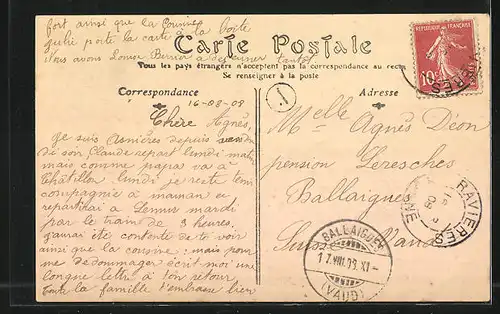 fort ainsi que la cousine
Julie porte la carte à la boîte
n/s avons Louise à déjeuner tantôt
Carte Postale
Tous les pays étrangers n'acceptent pas la correspondance au recto
Se renseigner à la poste
Correspondance
Adresse
REPUBLIQUE FRANÇAISE
10
16-08-08
Chère Agnès,
Je suis Asnières depuis
soir, Claude repart lundi matin
mais comme papa va à
Châtillon lundi je reste tenir
compagnie à maman et
repartirai à mardi
par le train de 3 heures.
J'aurai été contente de te voir
ainsi que la cousine; mais pour
me dédommager écrit-moi une
longue lettre à ton retour
Toute la famille t'embrasse bien
Melle Agnès Déon
pension Leresches
Ballaigues
Suisse Vaud
RAVIERES
BALLAIGUES
17.VIII.08.XI-
(VAUD)